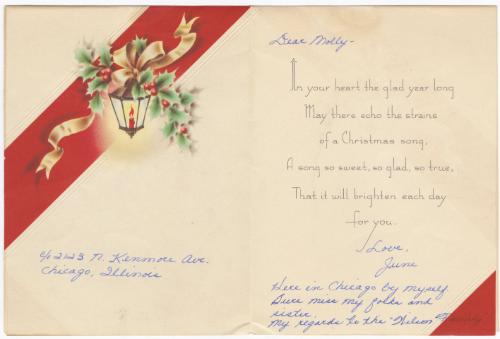 c/o 2123 N. Kenmore Ave.
Chicago, Illinois
Dear Molly-
In your heart the glad year long
May there echo the strains
of a Christmas song,
A song so sweet, so glad, so true,
That it will brighten each day
for you.
Love,
June
Here in Chicago by myself
Sure miss my folks and
sister.
My regards to the "Wilson" Family